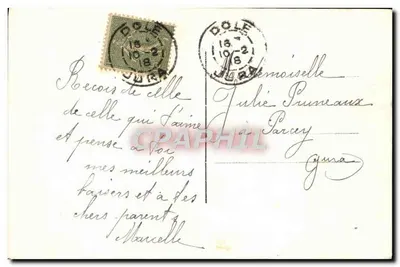 DOLE
18
10-2
18
JURA
DOLE
18
10-2
18
JURA
Recois de celle
de celle que t'aime
et pense a toi
mes meilleurs
baisers et à tes
chers parents
Marcelle
Mademoiselle
Julie Pruneaux
à Parcey
Jura
CPAPHIL